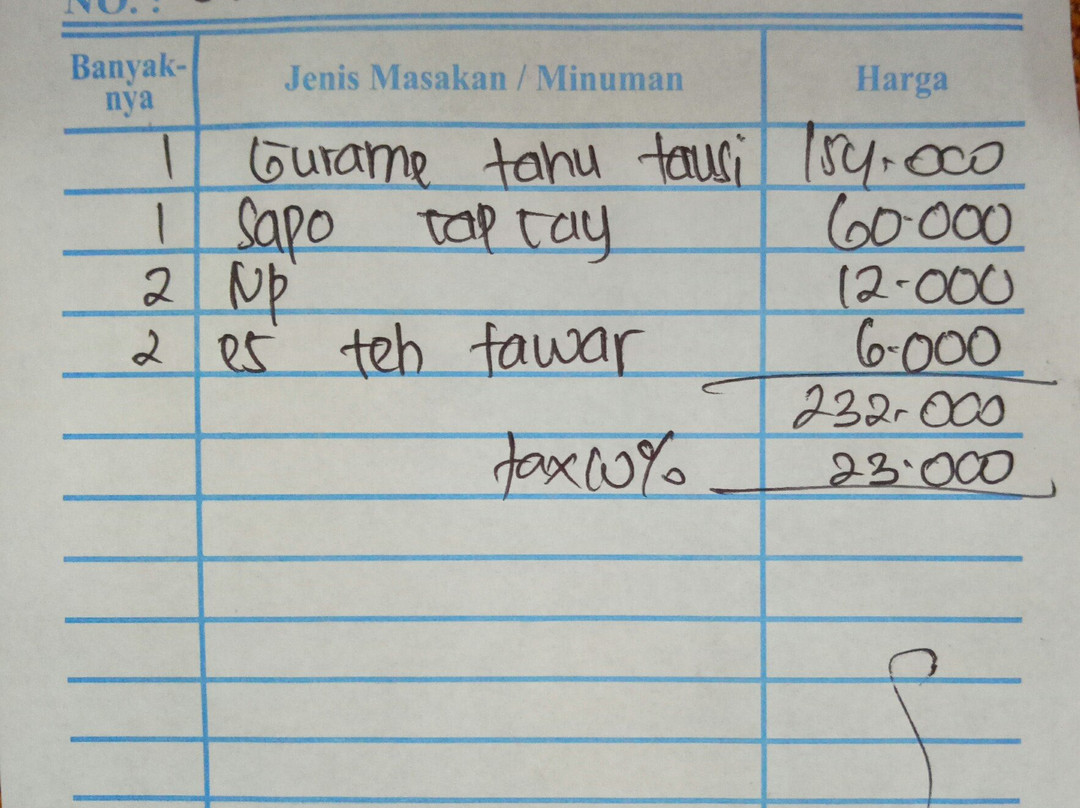 NO. :
Banyak-nya Jenis Masakan / Minuman Harga
1 Gurame tahu tausi 154.000
1 Sapo cap cay 60.000
2 Np 12.000
2 es teh tawar 6.000
232.000
tax 10% 23.000